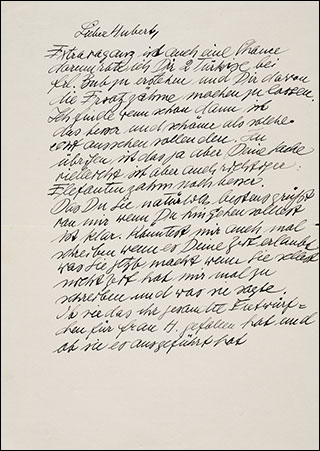 Lieber Hubert,
Extravaganz ist auch eine Chance
darum rate ich Dir 2 Türkise bei
Frl. Bub zu erstehen und Dir davon
die Ersatzzähne machen zu lassen.
Ich finde wenn schon dann ist
das besser und schöner als solche
echt aussehen sollenden. Im
übrigen ist das ja aber Deine Sache
vielleicht ist aber auch richtiger
Elefantenzahn noch besser.
Das Du sie natürlich bestens grüßt
von mir wenn Du hingehen solltest
ist klar. Könntest mir auch mal
schreiben wenn es Deine Zeit erlaubt
was sie jetzt macht wenn sie selbst
nicht Zeit hat mir mal zu
schreiben und was sie sagte.
zu das ihr gesandte Entwürf-
chen für Frau H. gefallen hat und
ob sie es ausgeführt hat